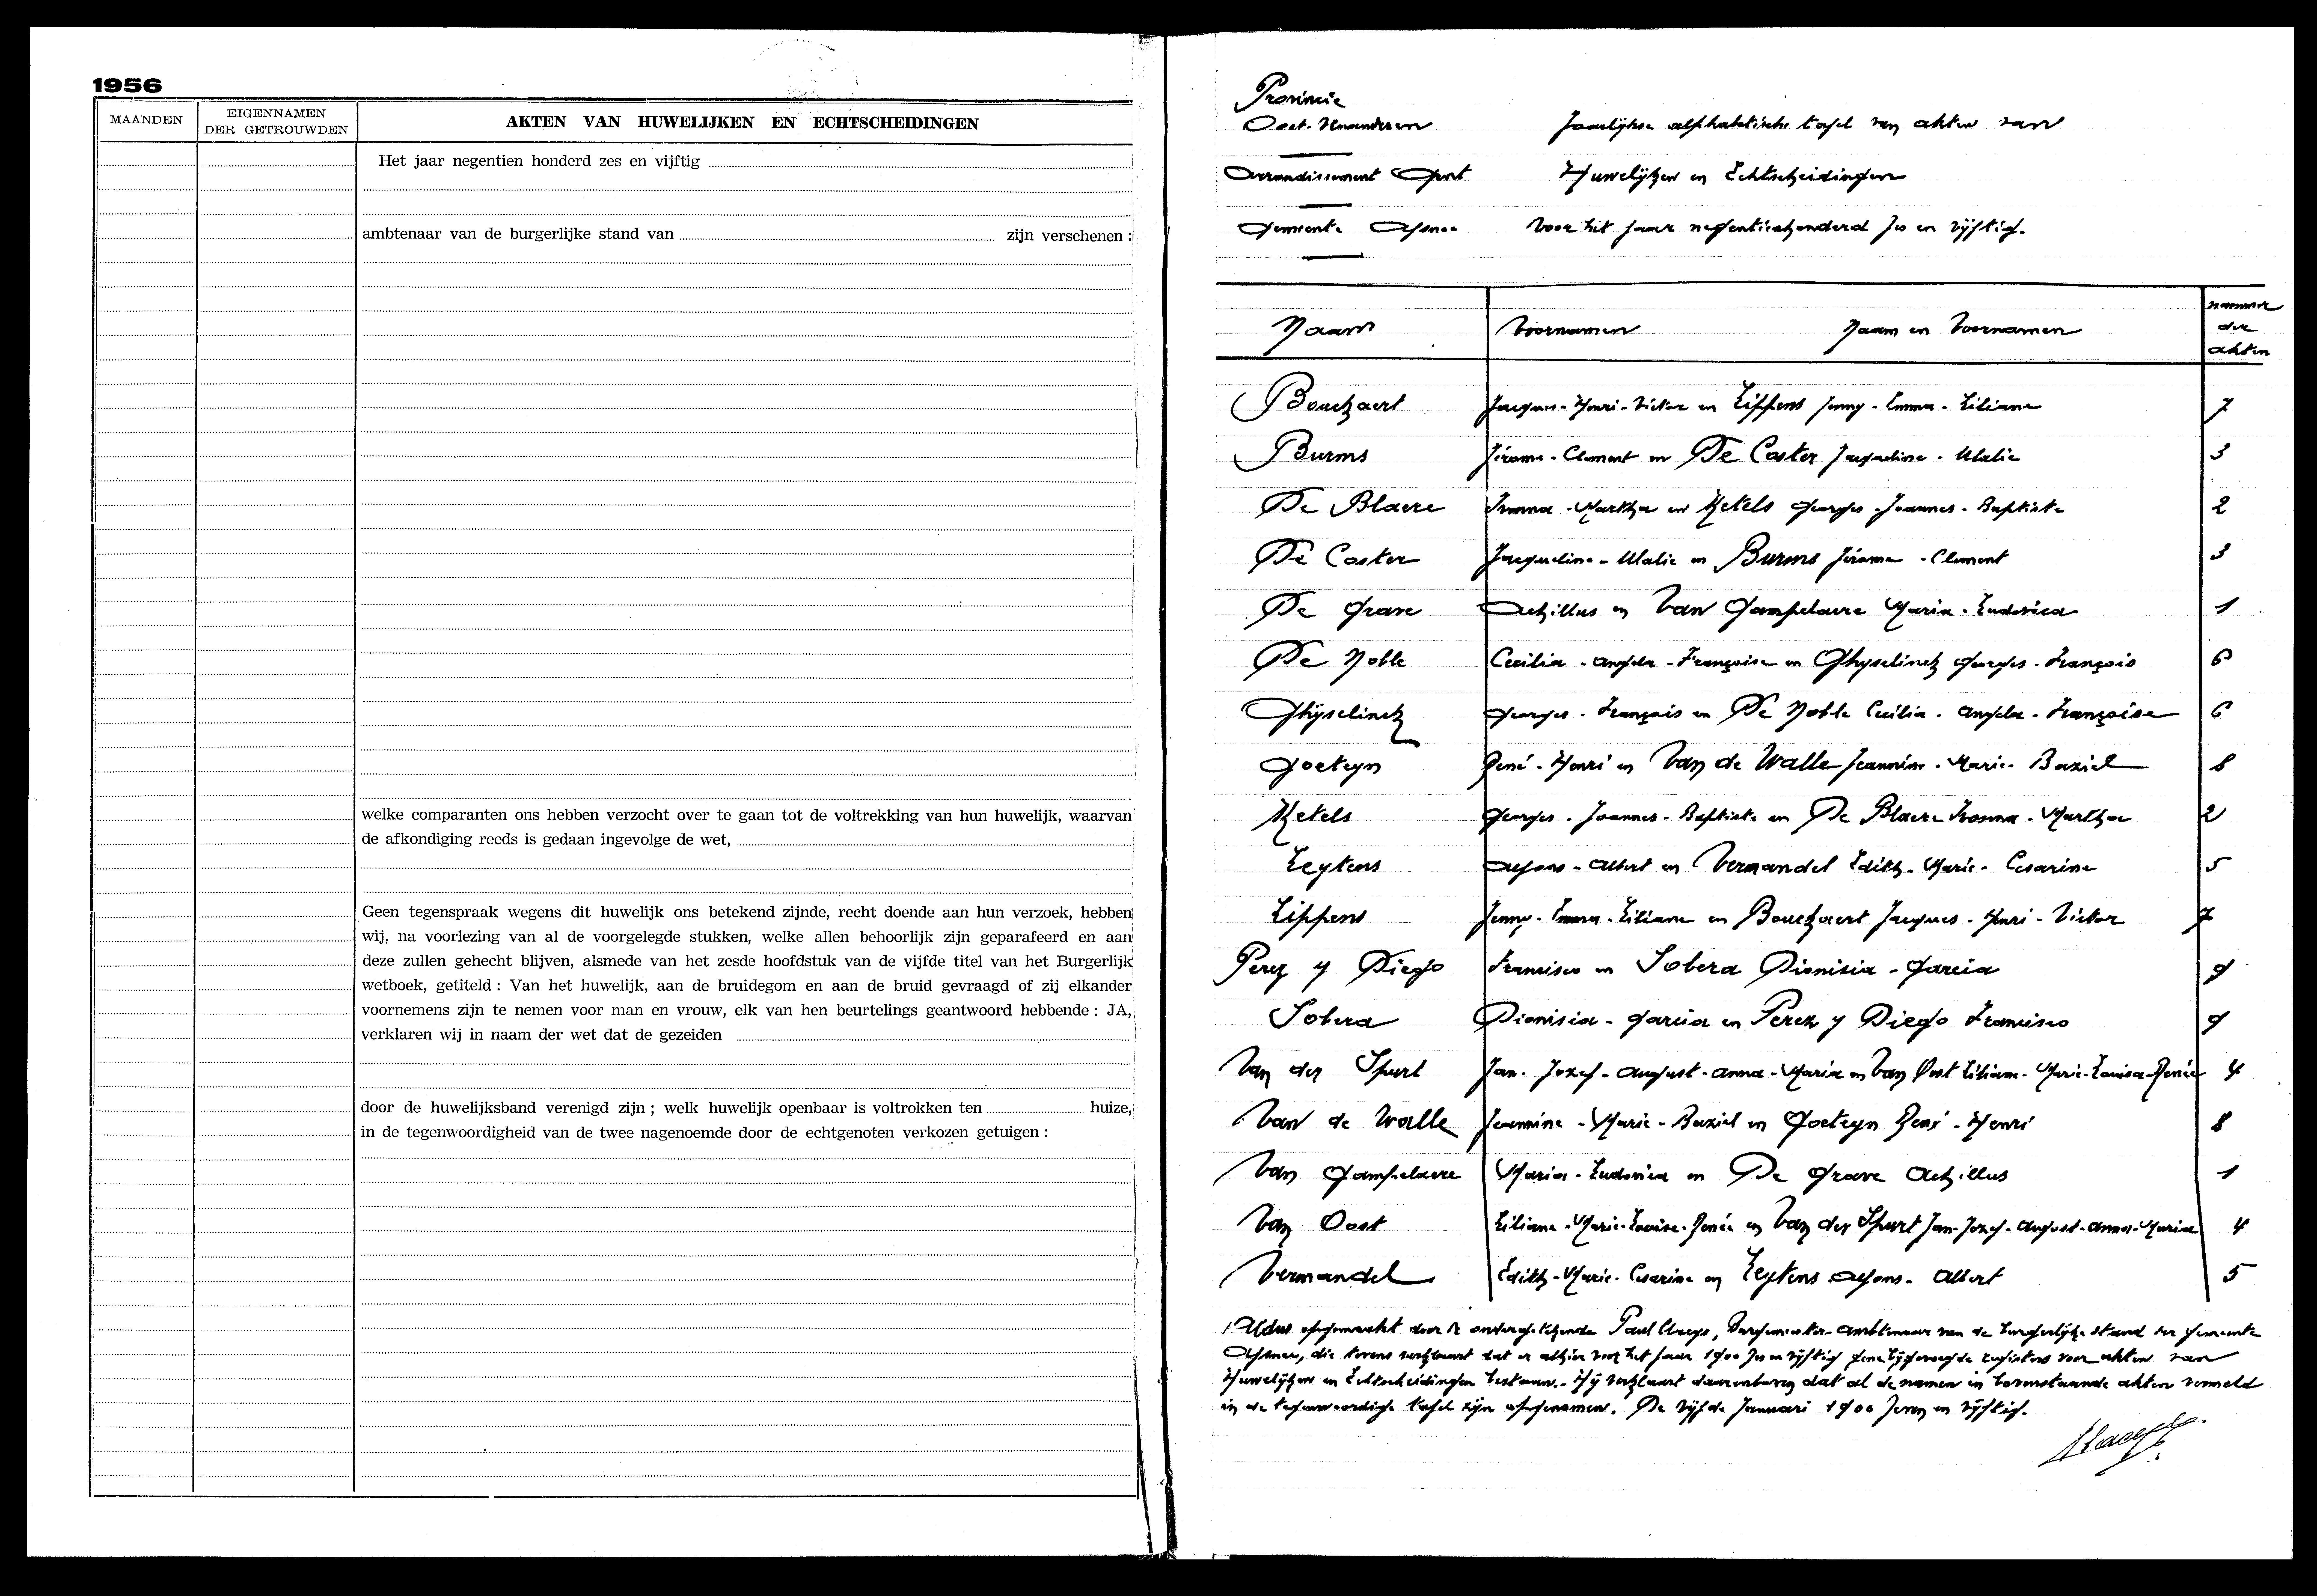 1956
MAANDEN
EIGENNAMEN
DER GETROUWDEN
AKTEN VAN HUWELIJKEN EN ECHTSCHEIDINGEN
Het jaar negentien honderd zes en vijftig
ambtenaar van de burgerlijke stand van zijn verschenen :
welke comparanten ons hebben verzocht over te gaan tot de voltrekking van hun huwelijk, waarvan
de afkondiging reeds is gedaan ingevolge de wet,
Geen tegenspraak wegens dit huwelijk ons betekend zijnde, recht doende aan hun verzoek, hebben
wij, na voorlezing van al de voorgelegde stukken, welke allen behoorlijk zijn geparafeerd en aan
deze zullen gehecht blijven, alsmede van het zesde hoofdstuk van de vijfde titel van het Burgerlijk
wetboek, getiteld : Van het huwelijk, aan de bruidegom en aan de bruid gevraagd of zij elkander
voornemens zijn te nemen voor man en vrouw, elk van hen beurtelings geantwoord hebbende : JA,
verklaren wij in naam der wet dat de gezeiden
door de huwelijksband verenigd zijn ; welk huwelijk openbaar is voltrokken ten huize,
in de tegenwoordigheid van de twee nagenoemde door de echtgenoten verkozen getuigen :
Provincie
Oost-Vlaanderen Jaarlijkse alphabetische tafel van akten van
Arrondissement Gent Huwelijken en Echtscheidingen
Gemeente Afsnee Voor het jaar negentienhonderd zes en vijftig.
Naam Voornamen Naam en Voornamen nummer der akten
Bouckaert Jacques-Henri-Victor en Lippens Jenny-Emma-Liliane 7
Burms Jérome-Clement en De Coster Jacqueline-Ulalie 3
De Blaere Ivonna-Martha en Ketels Georges-Joannes-Baptiste 2
De Coster Jacqueline-Ulalie en Burms Jérome-Clement 3
De Grave Achillus en Van Gampelaere Maria-Ludovica 1
De Noble Cecilia-Angela-Françoise en Ghyselinck Georges-François 6
Ghyselinck Georges-François en De Noble Cecilia-Angela-Françoise 6
Goeteyn René-Henri en Van de Walle Jeannine-Marie-Baziel 8
Ketels Georges-Joannes-Baptiste en De Blaere Ivonna-Martha 2
Leytens Alfons-Albert en Vermandel Edith-Marie-Cesarine 5
Lippens Jenny-Emma-Liliane en Bouckaert Jacques-Henri-Victor 7
Perez y Diego Francisco en Sobera Dionisia-Garcia 9
Sobera Dionisia-Garcia en Perez y Diego Francisco 9
Van der Spurt Jan-Jozef-August-Anna-Maria en Van Oost Liliane-Marie-Louisa-Renée 4
Van de Walle Jeannine-Marie-Baziel en Goeteyn René-Henri 8
Van Gampelaere Maria-Ludovica en De Grave Achillus 1
Van Oost Liliane-Marie-Louise-Renée en Van der Spurt Jan-Jozef-August-Anna-Maria 4
Vermandel Edith-Marie-Cesarine en Leytens Alfons-Albert 5
Aldus opgemaakt door de ondergetekende Paul Claeys, Burgemeester-ambtenaar van de burgerlijke stand der gemeente
Afsnee, die tevens verklaart dat er alhier voor het jaar 1900 zes en vijftig gene bijgevoegde registers voor akten van
Huwelijken en Echtscheidingen bestaan.- Hij verklaart daarenboven dat al de namen in bovenstaande akten vermeld
in de tegenwoordige tafel zijn opgenomen. De vijfde Januari 1900 zeven en vijftig.